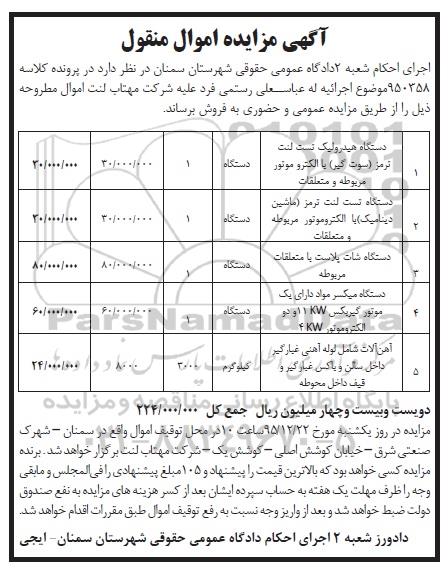 آگهی مزایده اموال منقول
اجرای احکام شعبه ۲دادگاه عمومی حقوقی شهرستان سمنان در نظر دارد در پرونده کلاسه
۹۵۰۳۵۸موضوع اجرائیه له عباسعلی رستمی فرد علیه شرکت مهتاب لنت اموال مطروحه
ذیل را از طریق مزایده عمومی و حضوری به فروش برساند.
۱ دستگاه هیدرولیک تست لنت ترمز (سوت گیر) با الکترو موتور مربوطه و متعلقات دستگاه ۱ ۳۰/۰۰۰/۰۰۰ ۳۰/۰۰۰/۰۰۰
۲ دستگاه تست لنت ترمز (ماشین دینامیک)با الکتروموتور مربوطه و متعلقات دستگاه ۱ ۳۰/۰۰۰/۰۰۰ ۳۰/۰۰۰/۰۰۰
۳ دستگاه شات پلاست با متعلقات مربوطه دستگاه ۱ ۸۰/۰۰۰/۰۰۰ ۸۰/۰۰۰/۰۰۰
۴ دستگاه میکسر مواد دارای یک موتور گیربکس ۱۱KW و دو الکتروموتور ۴KW دستگاه ۱ ۶۰/۰۰۰/۰۰۰ ۶۰/۰۰۰/۰۰۰
۵ آهن آلات شامل لوله آهنی غبارگیر داخل سالن و باکس غبارگیر و قیف داخل محوطه کیلوگرم ۳۰۰۰ ۸۰۰۰ ۲۴/۰۰۰/۰۰۰
دویست وبیست وچهار میلیون ریال جمع کل ۲۲۴/۰۰۰/۰۰۰
مزایده در روز یکشنبه مورخ ۹۵/۱۲/۲۲ساعت ۱۰در محل توقیف اموال واقع در سمنان – شهرک
صنعتی شرق – خیابان کوشش اصلی – کوشش یک – شرکت مهتاب لنت برگزار خواهد شد. برنده
مزایده کسی خواهد بود که بالاترین قیمت را پیشنهاد و ۱۰۵مبلغ پیشنهادی را فی المجلس و مابقی
وجه را ظرف مهلت یک هفته به حساب سپرده ایشان بعد از کسر هزینه های مزایده به نفع صندوق
دولت ضبط خواهد شد و بعد از واریز وجه نسبت به رفع توقیف اموال طبق مقررات اقدام خواهد شد.
دادورز شعبه ۲ اجرای احکام دادگاه عمومی حقوقی شهرستان سمنان– ایجی